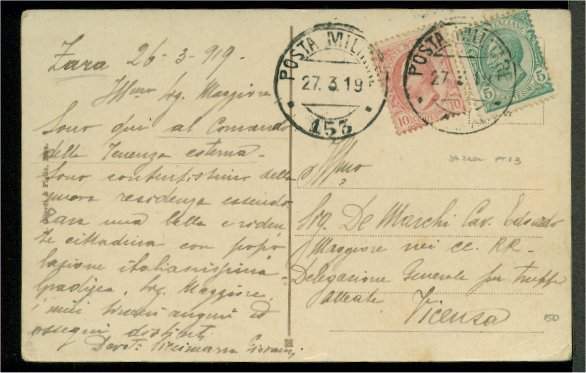 Zara 26-3-919.
Ill/mo Sig. Maggiore
Sono qui al Comando
della Tenenza esterna.
Sono contentissimo della
nuova residenza essendo
Zara una bella e riden
te cittadina con popo
lazione italianissima.
Gradisca, Sig. Maggiore,
i miei sinceri auguri ed
ossequi distinti
POSTA MILITARE
27.3.19
153
POSTA MILITARE
27.3.19
10
10
ITALIANE
5
5
Zara N 13
Ill/mo
Sig. De Marchi Cav. Edoardo
Maggiore nei CC. RR.
Delegazione Generale per truppe
alleate
Vicenza
150